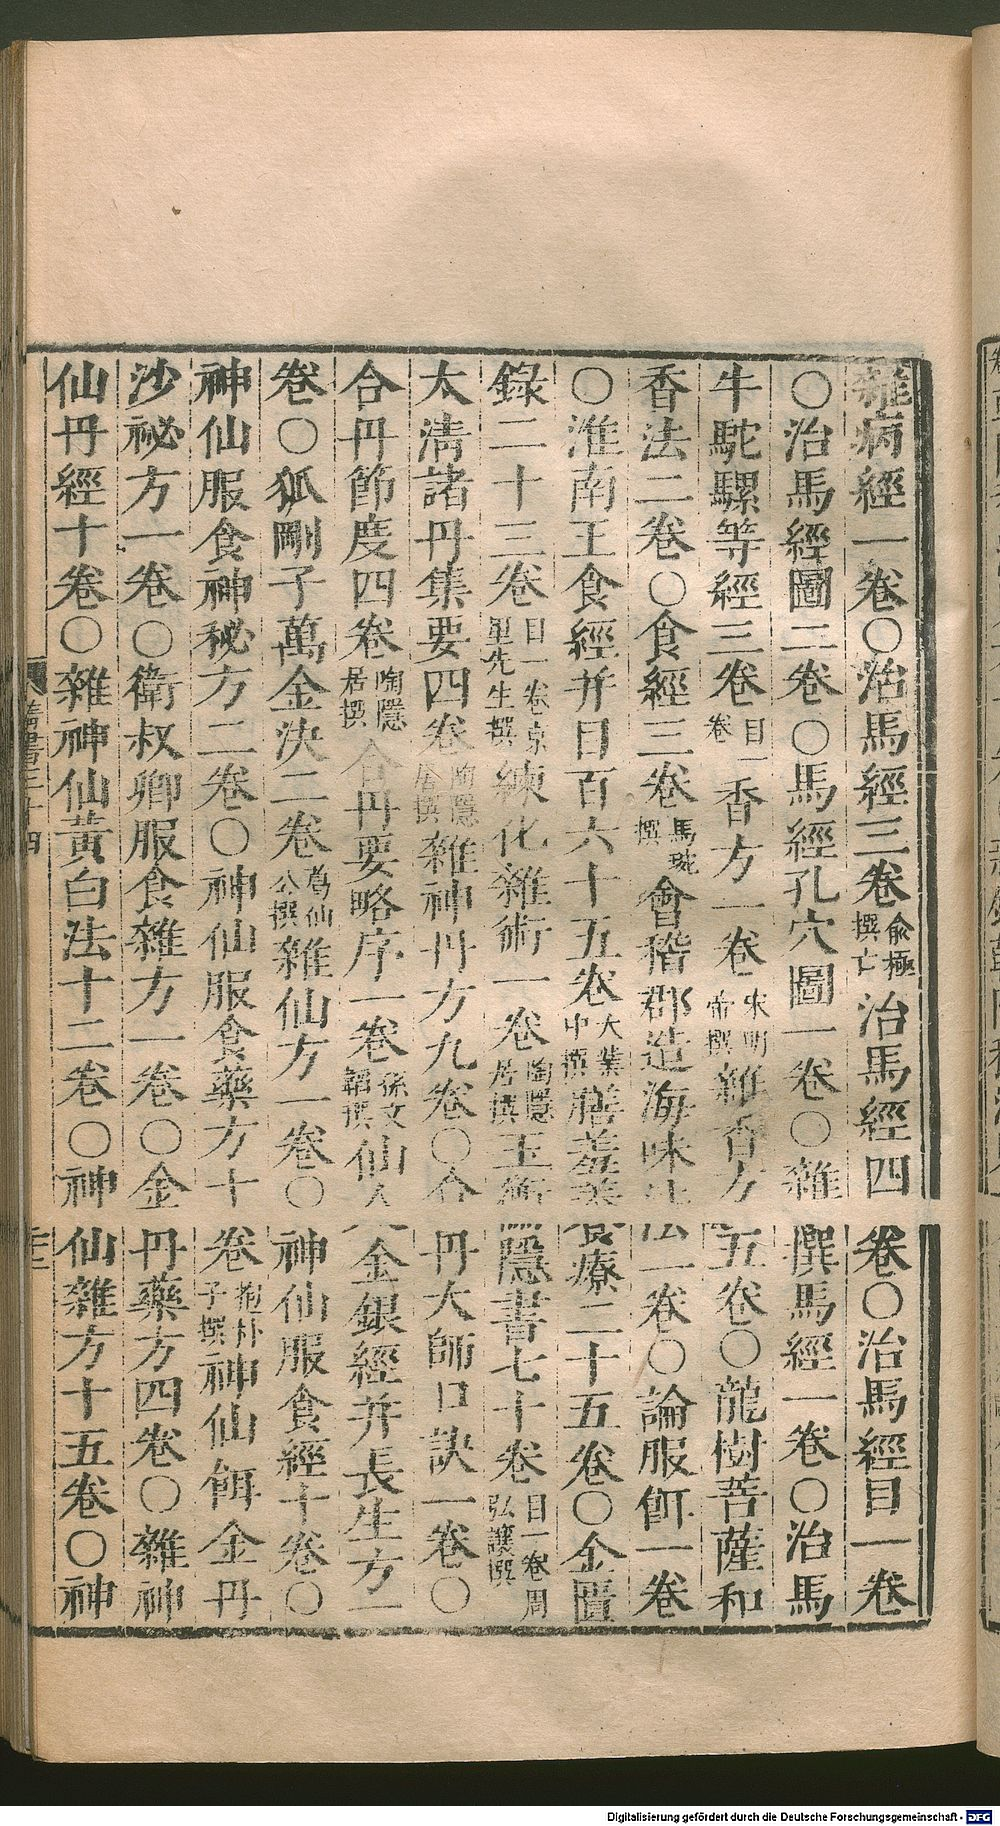 雜病經一卷○治馬經三卷俞極撰亡治馬經四卷○治馬經目一卷
○治馬經圖二卷○馬經孔穴圖一卷○雜撰馬經一卷○治馬
牛駝騾等經三卷目一卷香方一卷宋明帝撰雜香方五卷○龍樹菩薩和
香法二卷○食經三卷馬琬撰會稽郡造海味法一卷○論服餌一卷
○淮南王食經并目百六十五卷大業中撰膳羞養療二十五卷○金匱
錄二十三卷目一卷京里先生撰練化雜術一卷陶隱居撰玉衡隱書七十卷目一卷周弘讓撰
太清諸丹集要四卷陶隱居撰雜神丹方九卷○合丹大師口訣一卷○
合丹節度四卷陶隱居撰合丹要略序一卷孫文韜撰仙人金銀經并長生方一
卷○狐剛子萬金決二卷葛仙公撰雜仙方一卷○神仙服食經十卷○
神仙服食神秘方二卷○神仙服食藥方十卷抱朴子撰神仙餌金丹
沙祕方一卷○衛叔卿服食雜方一卷○金丹藥方四卷○雜神
仙丹經十卷○雜神仙黃白法十二卷○神仙雜方十五卷○神
隋書三十四
三十二
Digitalisierung gefördert durch die Deutsche Forschungsgemeinschaft - DFG